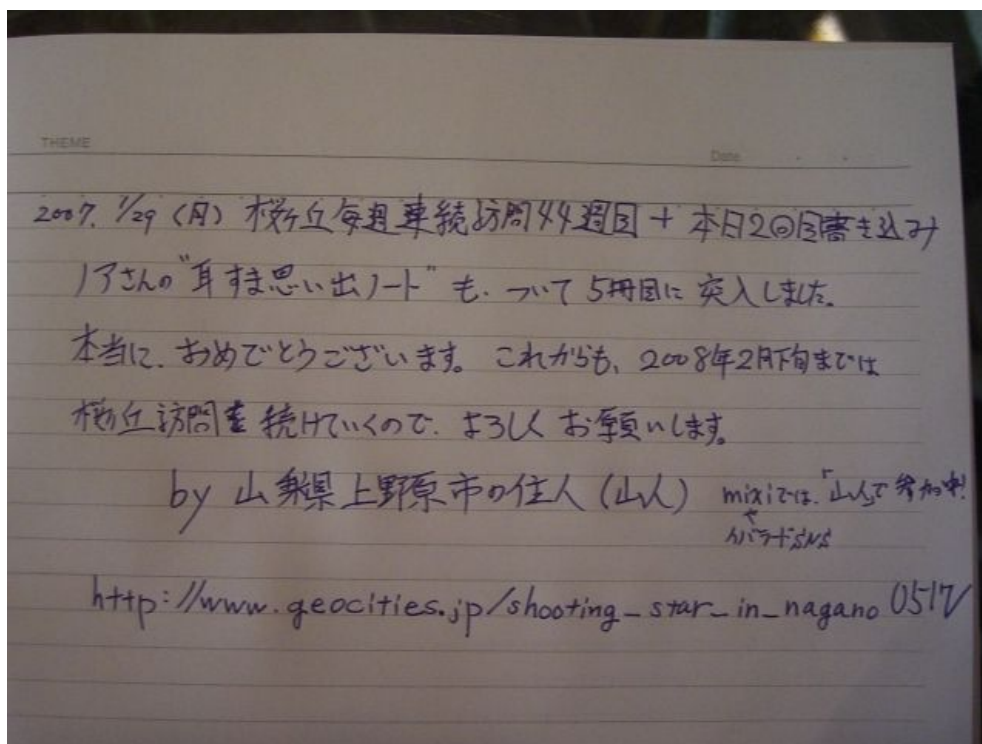 THEME
Date
2007. 1/29 (月) 桜ヶ丘毎週連続訪問44週目 + 本日2回目書き込み
ノアさんの"耳すま思い出ノート"も、ついて5冊目に突入しました。
本当に、おめでとうございます。これからも、2008年2月下旬までは
桜ヶ丘訪問を続けていくので、よろしくお願いします。
by 山梨県上野原市の住人(山人) mixiでは、「山人」で参加中!
や
イバラードSNS
http://www.geocities.jp/shooting_star_in_nagano0517/